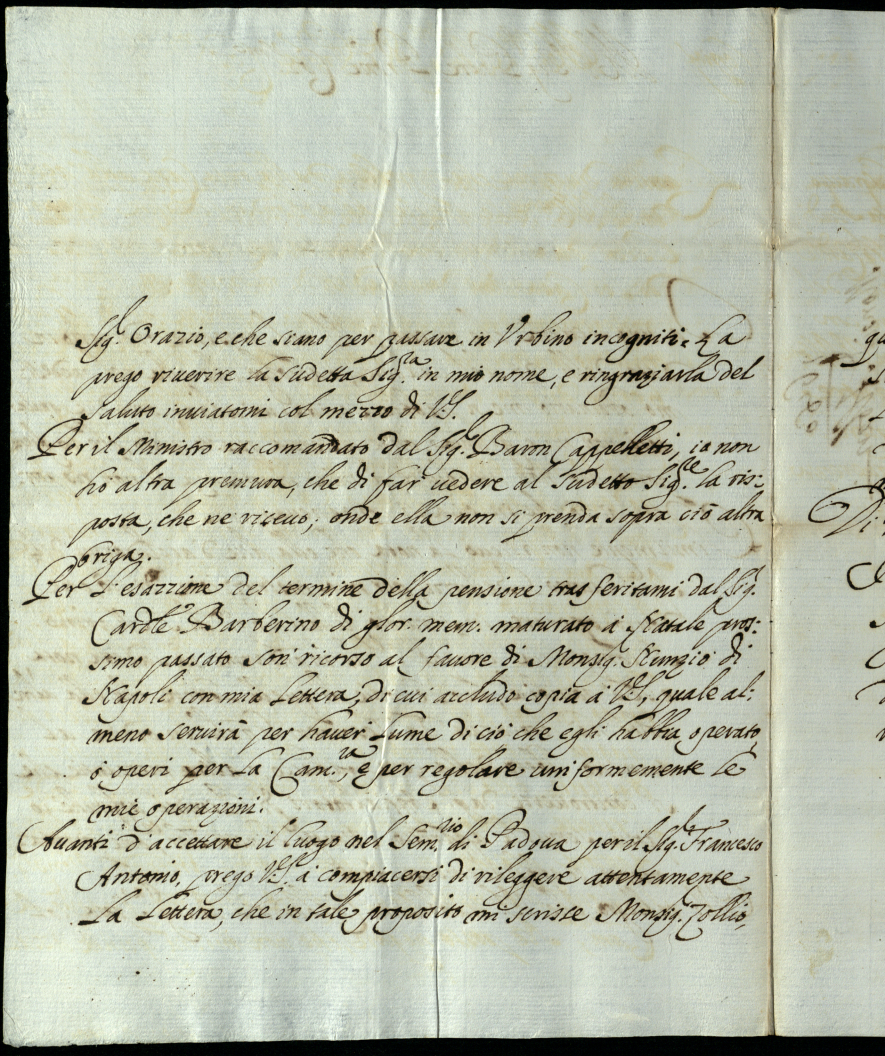 Sig.r Orazio, e che siano per passare in Urbino incogniti. La
prego riverire la sudetta Sig.ra in mio nome, e ringraziarla del
saluto inviatomi col mezzo di V.S.
Per il Ministro raccomandato dal Sig.r Baron Cappelletti, io non
hò altra premura, che di far vedere al sudetto Sig.re la ris:
posta, che ne ricevo; onde ella non si prenda sopra ciò altra
briga.
Per l'esazzione del termine della pensione trasferitami dal Sig.r
Cardle Barberino di glor. mem. maturato à Natale pros:
simo passato son ricorso al favore di Monsig. Nunzio di
Napoli con mia lettera, di cui accludo copia à V.S., quale al:
meno servirà per haver lume di ciò che egli habbia operato,
ò operi per la Cam.ra, e per regolare uniformemente le
mie operazioni.
Avanti d'accettare il luogo nel Sem.rio di Padova per il Sig.r Francesco
Antonio, prego V.S. à compiacersi di rileggere attentamente
la lettera, che in tale proposito mi scrisse Monsig. Zollio,
Di